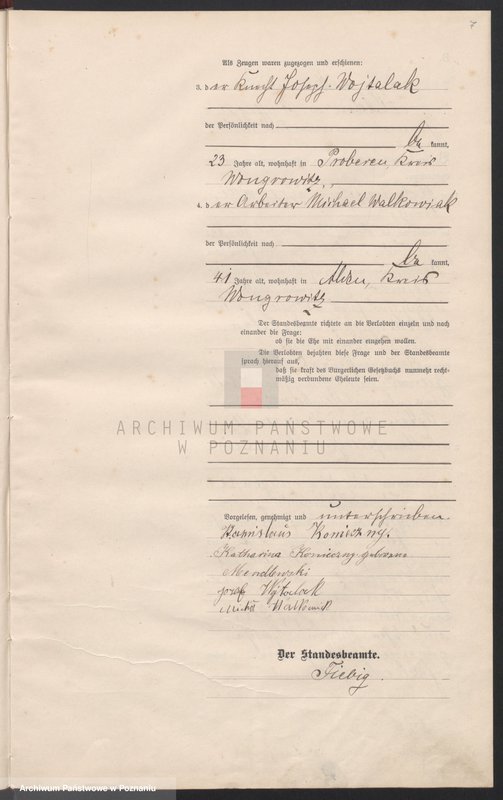 7
Als Zeugen waren zugezogen und erschienen:
3. der Knecht Joseph Wojtalak
der Persönlichkeit nach
be kannt,
23 Jahre alt, wohnhaft in Proberen, Kreis
Wongrowitz,
4. der Arbeiter Michael Walkowiak
der Persönlichkeit nach
be kannt,
41 Jahre alt, wohnhaft in Kreis
Wongrowitz
Der Standesbeamte richtete an die Verlobten einzeln und nach
einander die Frage:
ob sie die Ehe mit einander eingehen wollen.
Die Verlobten bejahten diese Frage und der Standesbeamte
sprach hierauf aus,
daß sie kraft des Bürgerlichen Gesetzbuchs nunmehr recht-
mäßig verbundene Eheleute seien.
ARCHIWUM PAŃSTWOWE
W POZNANIU
Vorgelesen, genehmigt und unterschrieben.
Stanislaus Konieczny.
Katharina Konieczny geborene
Mendlewski
Josef Wojtalak
Walkowiak
Der Standesbeamte.
Fiebig.
Archiwum Państwowe w Poznaniu